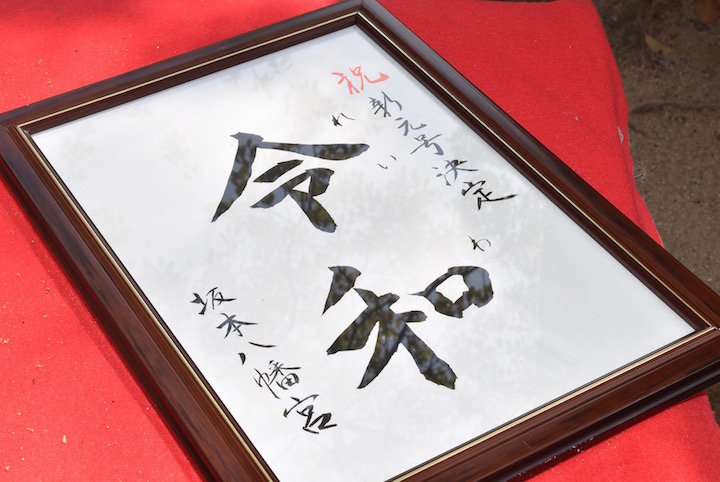 祝新元号決定
れいわ
令和
坂本八幡宮